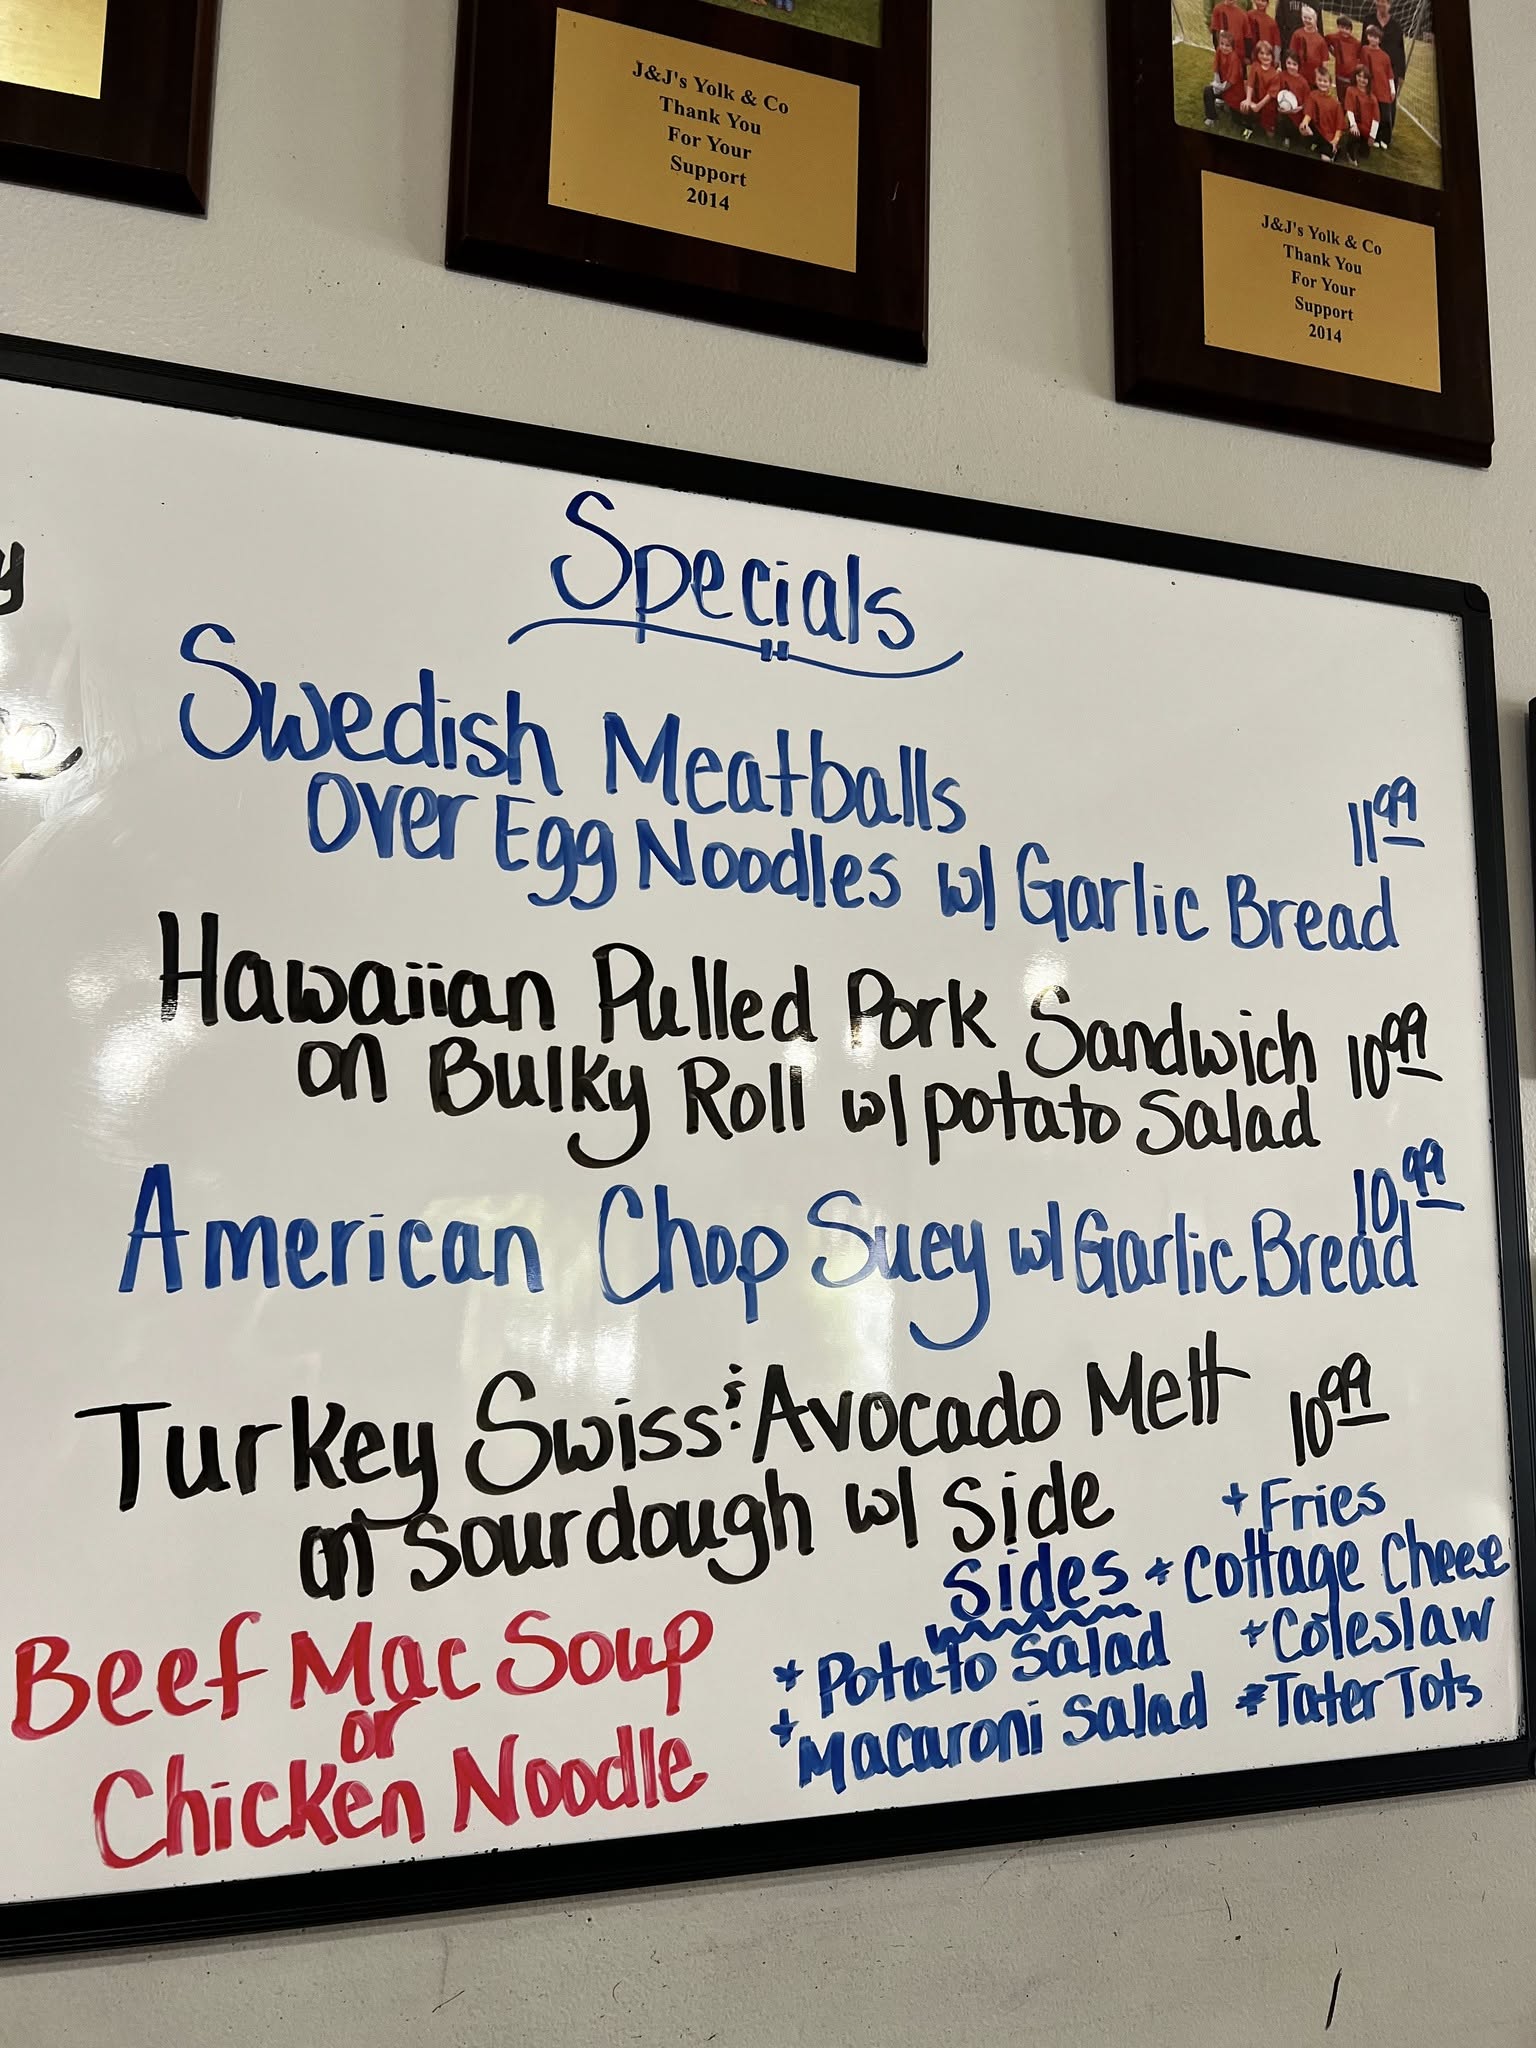 J&J's Yolk & Co
Thank You
For Your
Support
2014
J&J's Yolk & Co
Thank You
For Your
Support
2014
Specials
Swedish Meatballs
over Egg Noodles w/ Garlic Bread 11.99
Hawaiian Pulled Pork Sandwich 10.99
on Bulky Roll w/ potato Salad
American Chop Suey w/ Garlic Bread 10.99
Turkey Swiss & Avocado Melt 10.99
on sourdough w/ side
Sides
* Potato Salad
+ Macaroni Salad
+ Fries
* Cottage Cheese
+ Coleslaw
* Tater Tots
Beef Mac Soup
or
Chicken Noodle